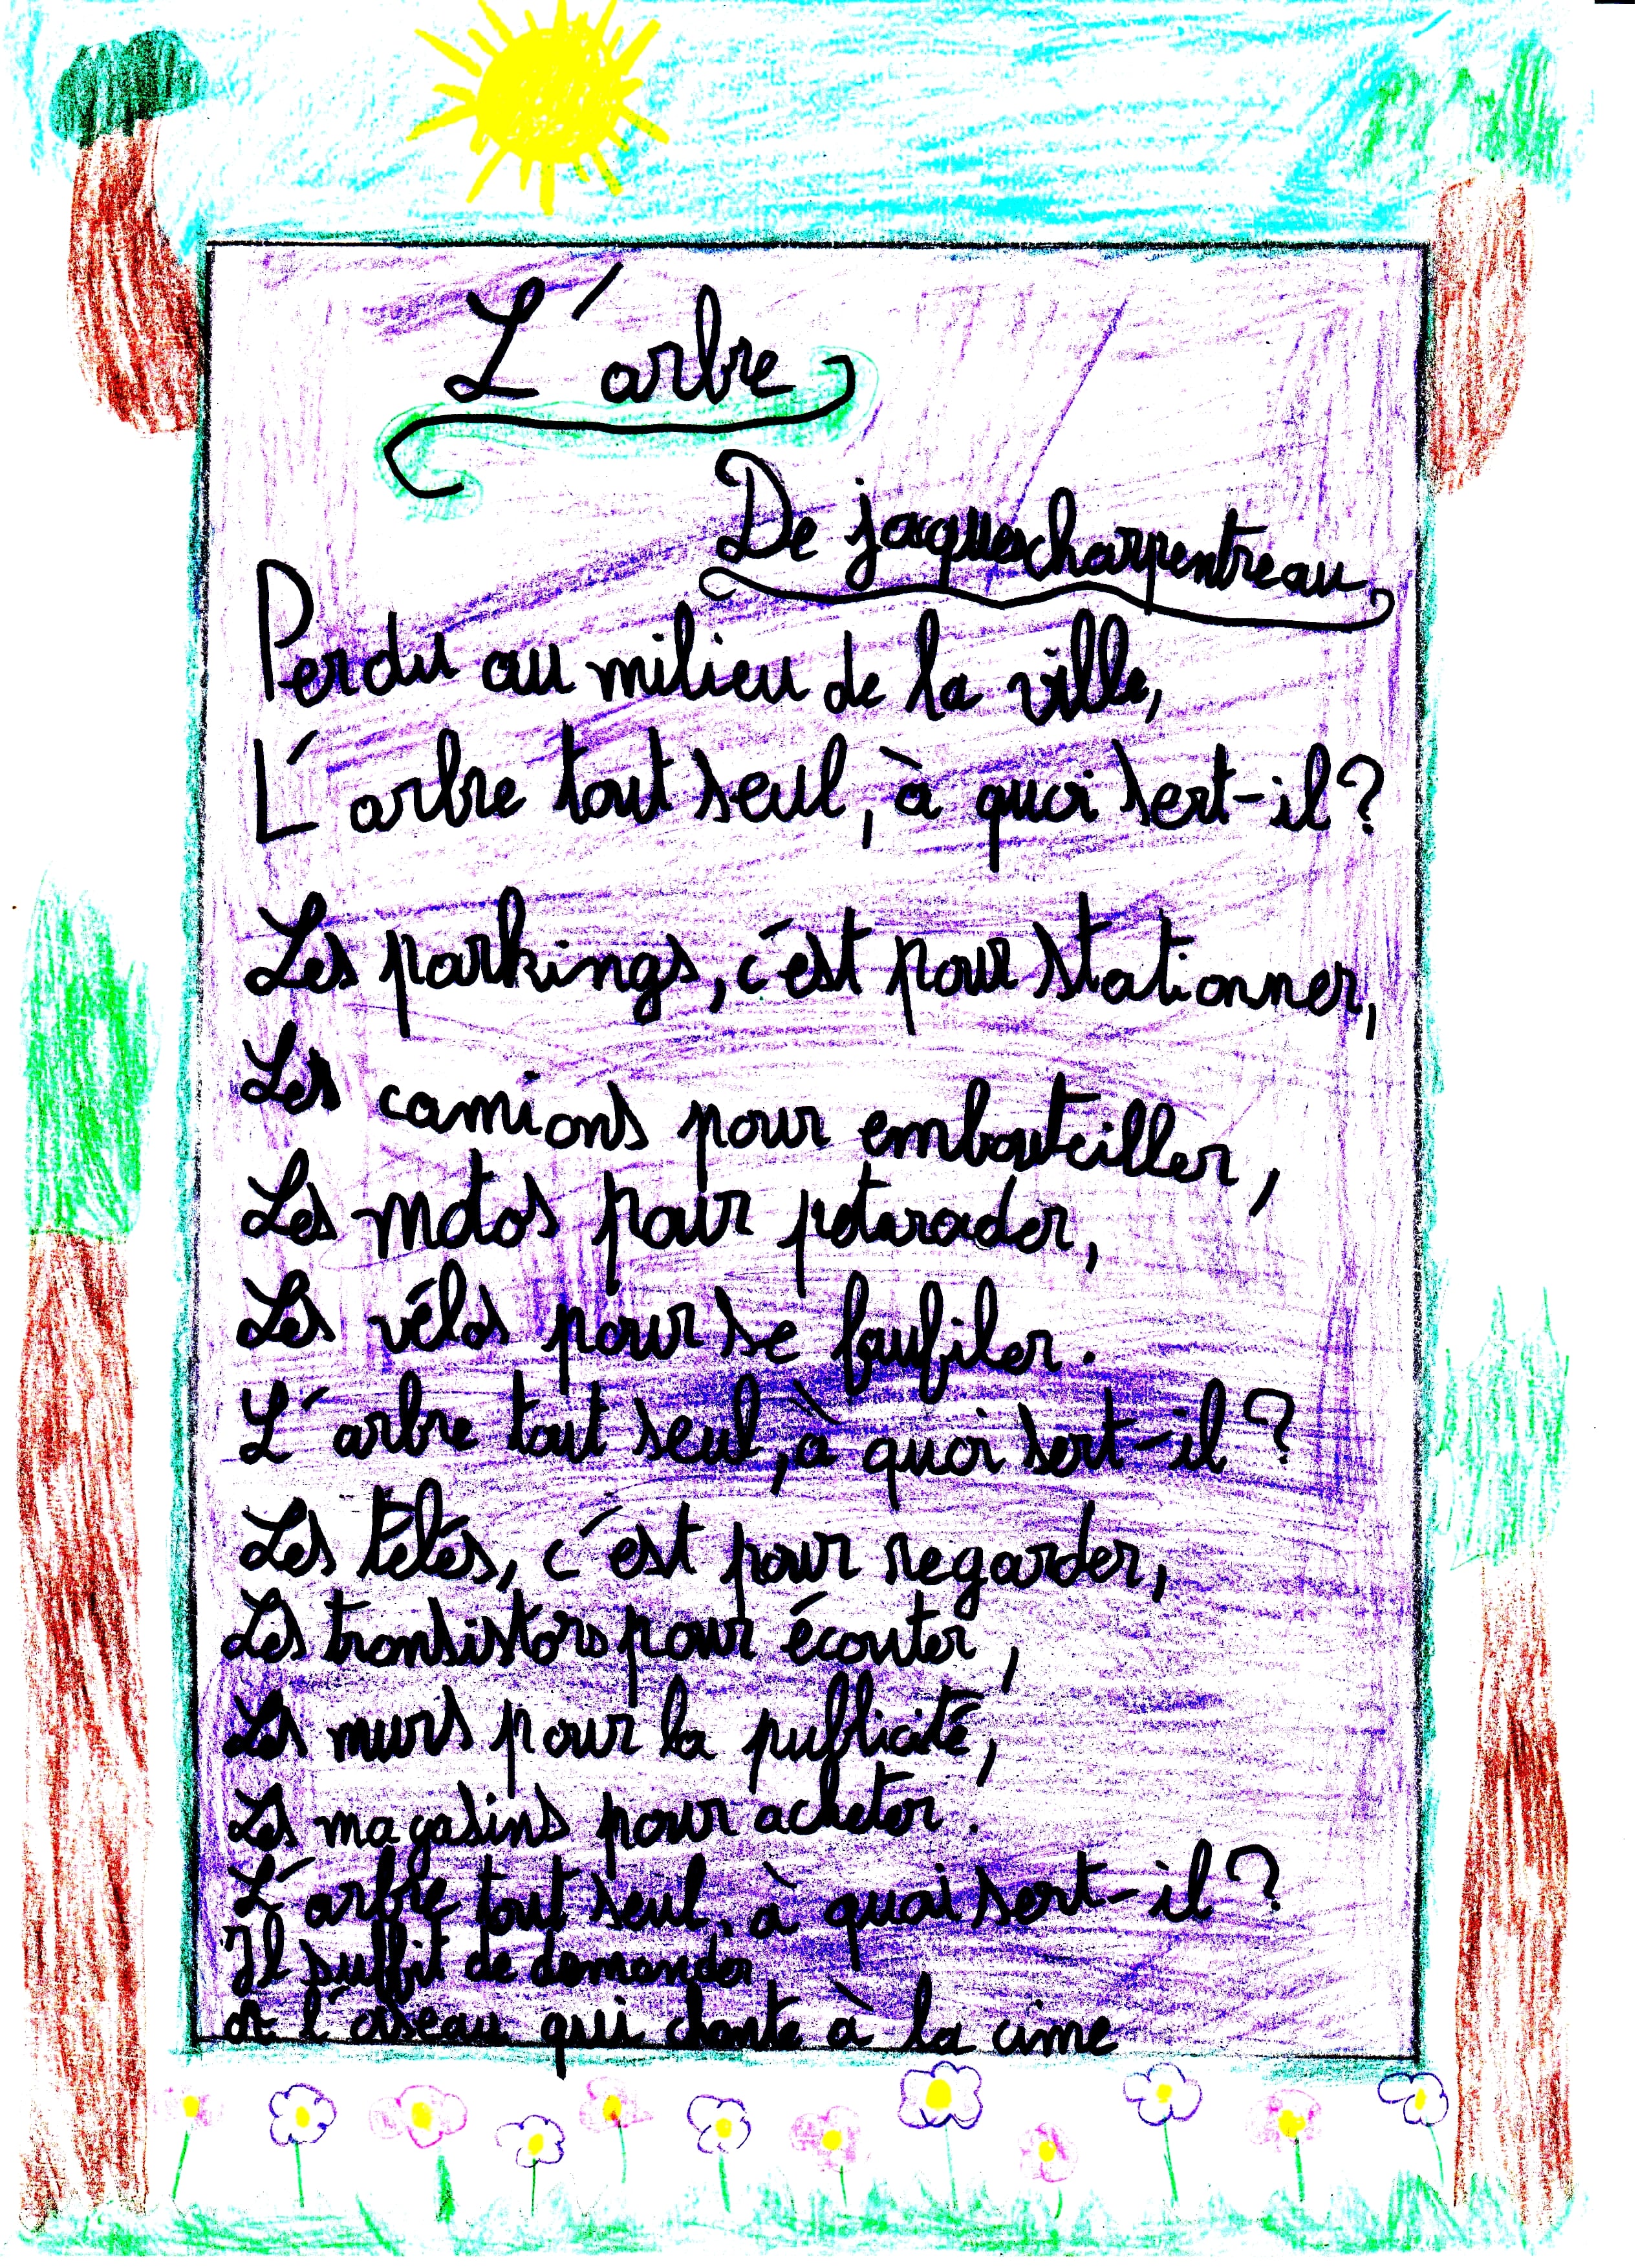 L'arbre
De jacques charpentreau
Perdu au milieu de la ville,
L'arbre tout seul, à quoi sert-il?
Les parkings, c'est pour stationner,
Les camions pour embouteiller,
Les motos pour pétarader,
Les vélos pour se faufiler.
L'arbre tout seul, à quoi sert-il?
Les télés, c'est pour regarder,
Les transistors pour écouter,
Les murs pour la publicité,
Les magasins pour acheter.
L'arbre tout seul, à quoi sert-il?
Il suffit de demander
A l'oiseau qui chante à la cime